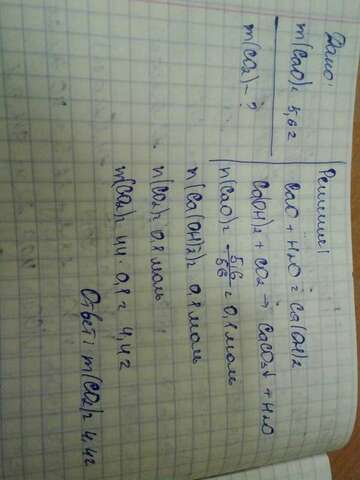 Дано:
m(CaO)= 5,6 г
m(CO2) - ?
Решение:
CaO + H2O = Ca(OH)2
Ca(OH)2 + CO2 → CaCO3↓ + H2O
n(CaO)= 5,6/56 = 0,1 моль
n(Ca(OH)2)= 0,1 моль
n(CO2)= 0,1 моль
m(CO2)= 44 · 0,1 = 4,4 г
Ответ: m(CO2)= 4,4 г